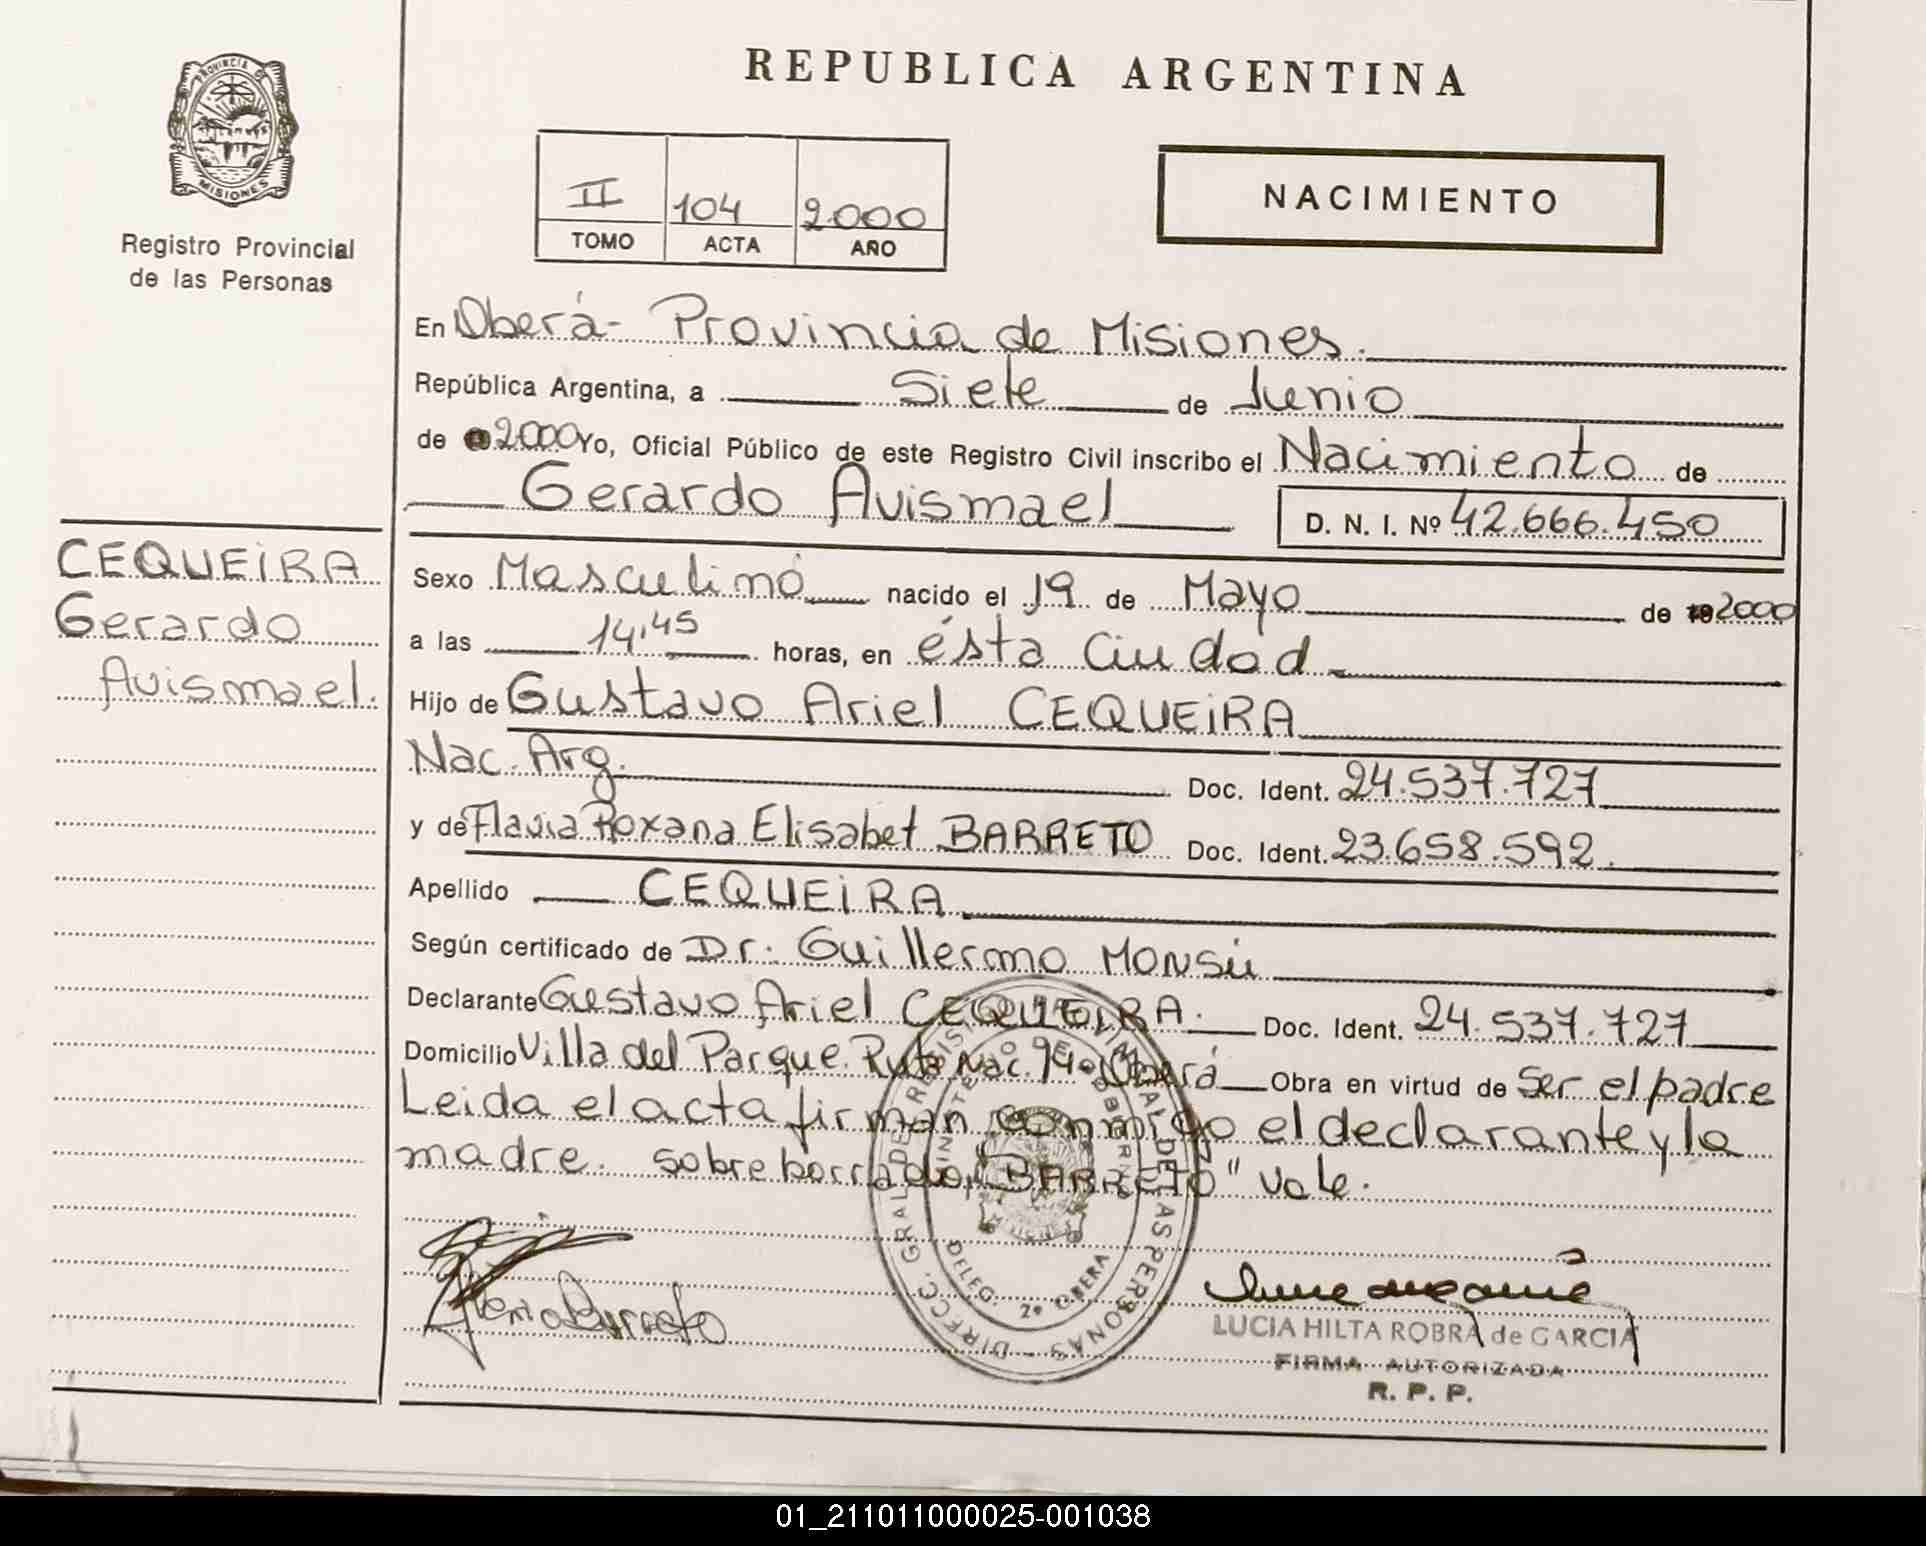 PROVINCIA DE
MISIONES
Registro Provincial
de las Personas
REPUBLICA ARGENTINA
II 104 2000
TOMO ACTA AÑO
NACIMIENTO
En Oberá - Provincia de Misiones.
República Argentina, a Siete de Junio
de 2000 Yo, Oficial Público de este Registro Civil inscribo el Nacimiento de
Gerardo Avismael
D. N. I. Nº 42.666.450
CEQUEiRA
Gerardo
Avismael.
Sexo Masculino nacido el 19 de Mayo de 2000
a las 14,45 horas, en ésta Ciudad
Hijo de Gustavo Ariel CEQUEiRA
Nac. Arg. Doc. Ident. 24.537.727
y de Flavia Roxana Elisabet BARRETO Doc. Ident. 23.658.592.
Apellido CEQUEiRA
Según certificado de Dr. Guillermo Monsú
Declarante Gustavo Ariel CEQUEiRA. Doc. Ident. 24.537.727
Domicilio Villa del Parque. Ruta Nac. 14. Oberá Obra en virtud de ser el padre
Leida el acta firman conmigo el declarante y la
madre. sobreborrado, "BARRETO" vale.
DIRECC. GRAL DE REGISTRO PROVINCIAL DE LAS PERSONAS
MINISTERIO DE GOBIERNO
DELEG. 2º OBERA
Barreto
LUCIA HILTA ROBRA de GARCIA
FIRMA AUTORIZADA
R. P. P.
01_211011000025-001038